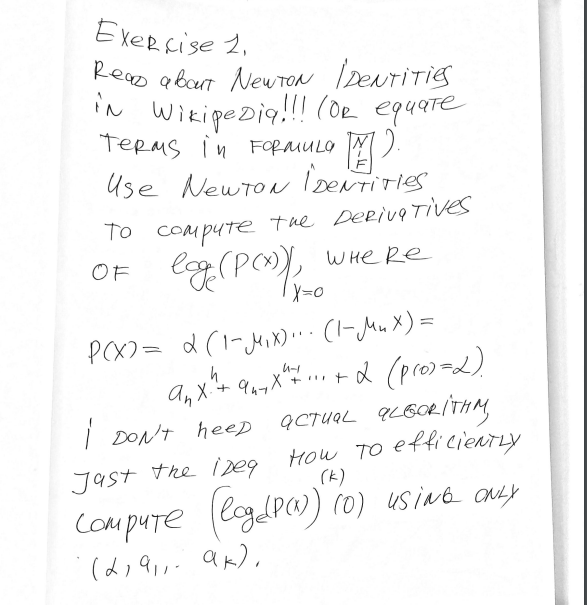 Exercise 1.
Read about Newton Identities
in Wikipedia!!! (or equate
terms in formula N-F).
Use Newton Identities
to compute the derivatives
of log_e(P(x))|_{x=0}, where
P(x) = α(1-μ_1x)... (1-μ_nx) =
a_n x^n + a_{n-1} x^{n-1} + ... + α (p(0)=α).
I don't need actual algorithm,
Jast the idea how to efficiently
compute (log_e(P(x))^{(k)}(0) using only
(α, a_1, .. a_k).